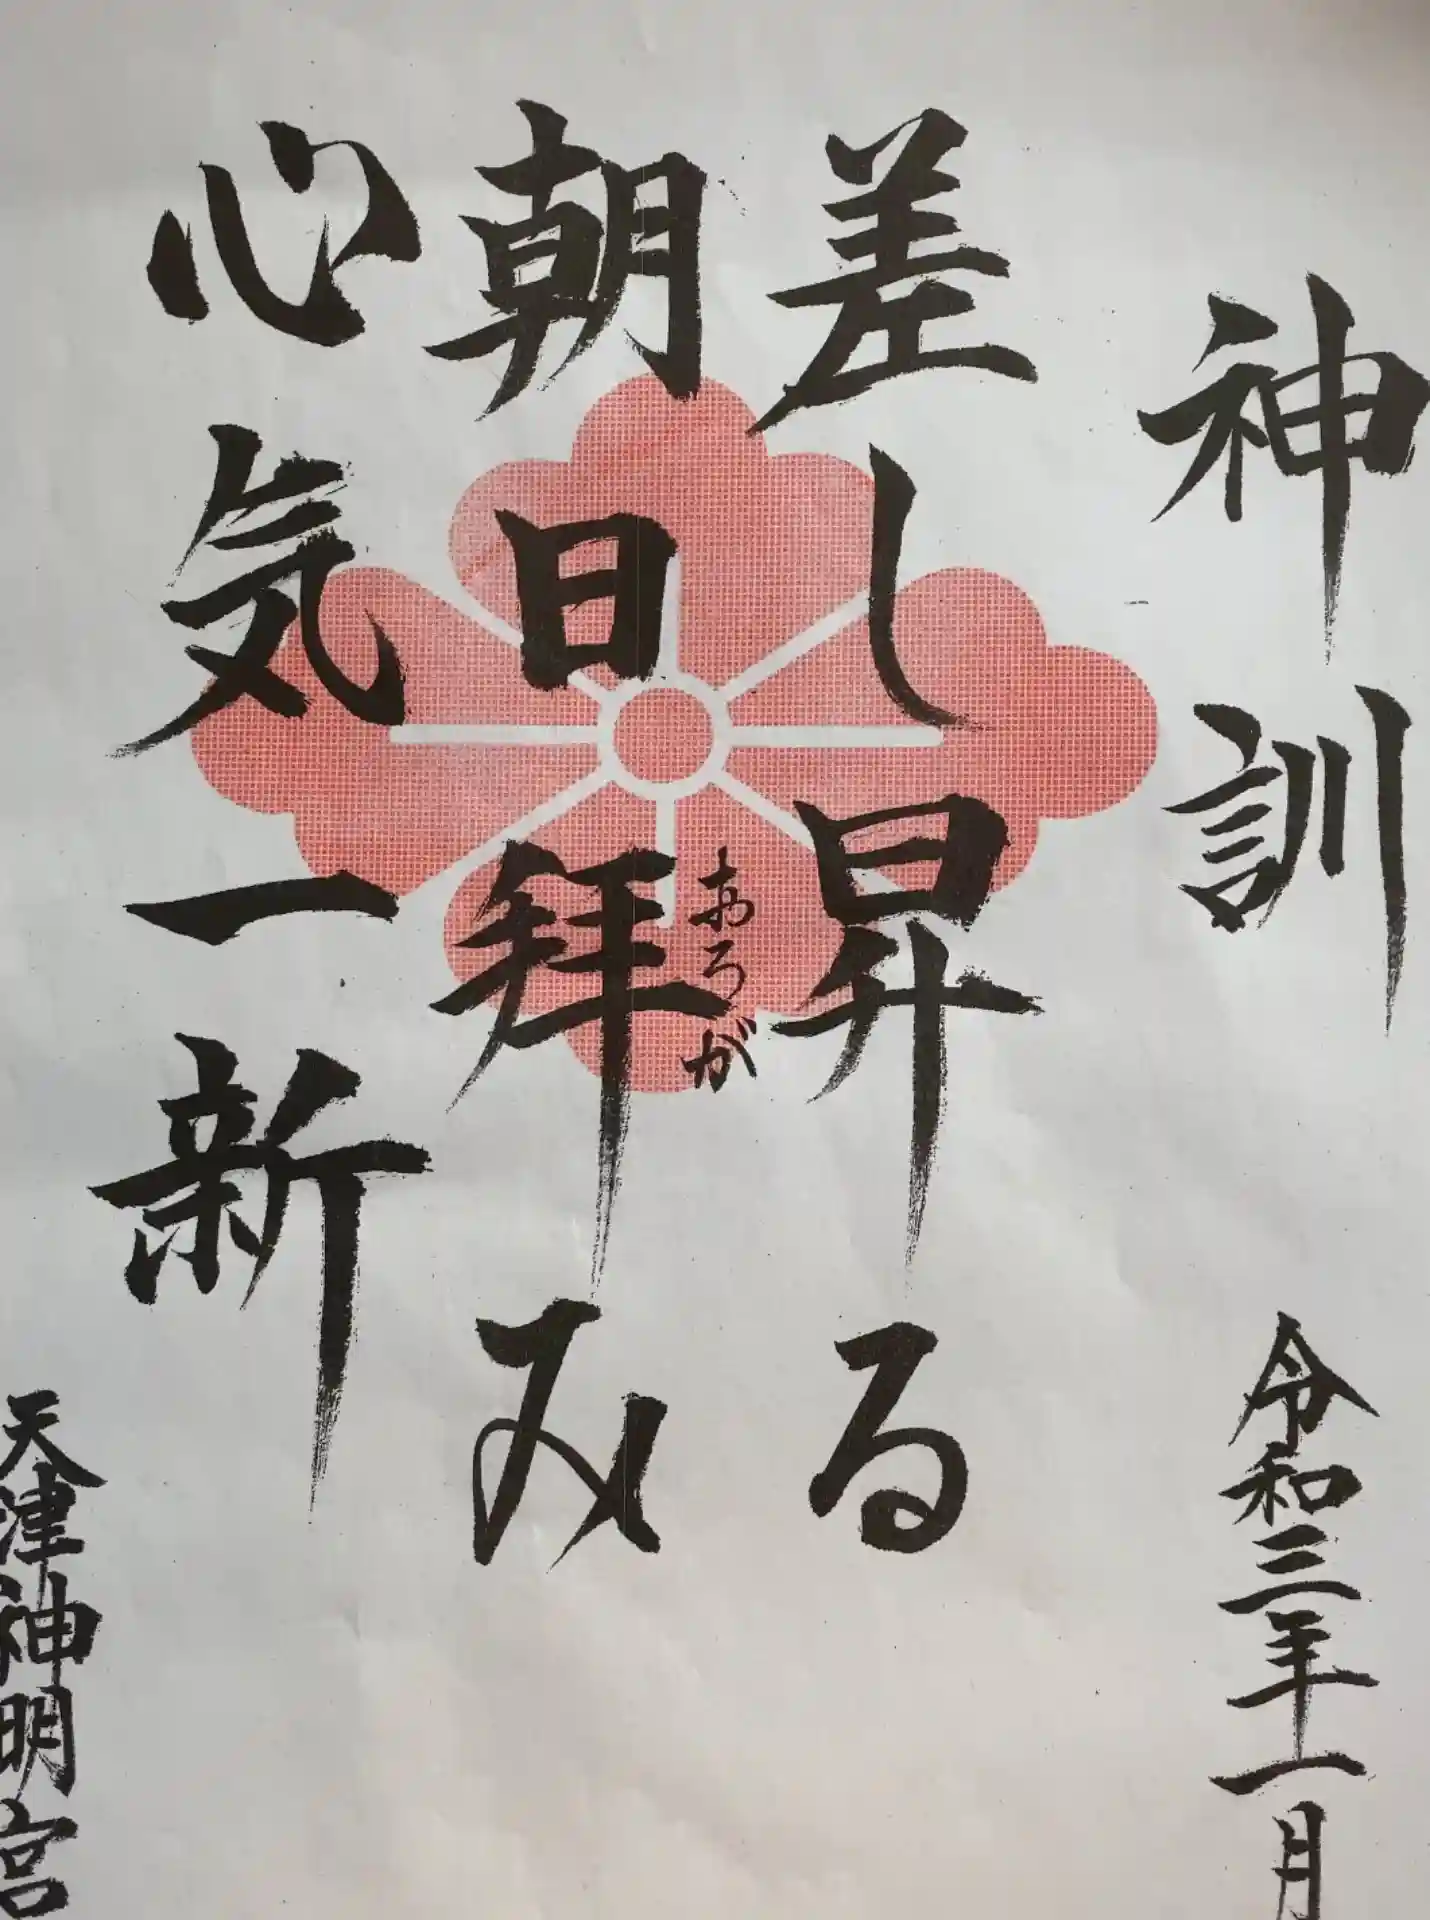 神訓
令和三年一月
差し昇る
朝日拝み
おろが
心気一新
天津神明宮